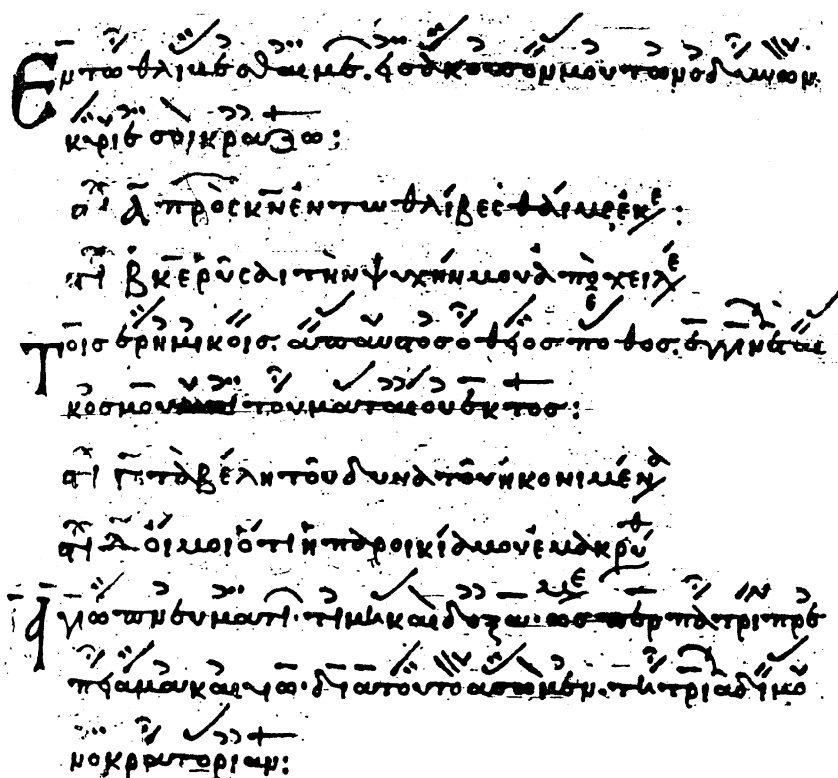 Εν τω θλιβεσθαι με. εισακουσον μου των οδυνων.
κυριε σοι κραζω:
στι Α πρὸς κν ἐν τω θλίβεσθαί με ἐκε:
στι Β κε ῥῦσαι τὴν ψυχήν μου ἀπὸ χειλε
Τοις ερημικοις. απαυστος ο θειος ποθος. εγγινεται
κοσμου του ματαιου εκτος:
στι Γ τὰ βέλη τοῦ δυνατοῦ ἠκονιμένα
στι Δ οἴμοι ὅτι ἡ παροικία μου ἐμακρύ
Αγιω πνευματι. τιμη και δοξα. ωσπερ πατρι πρε
πει αμα και υιω. δια τουτο ασωμεν. τη τριαδι μο
νοκρατοριαν: